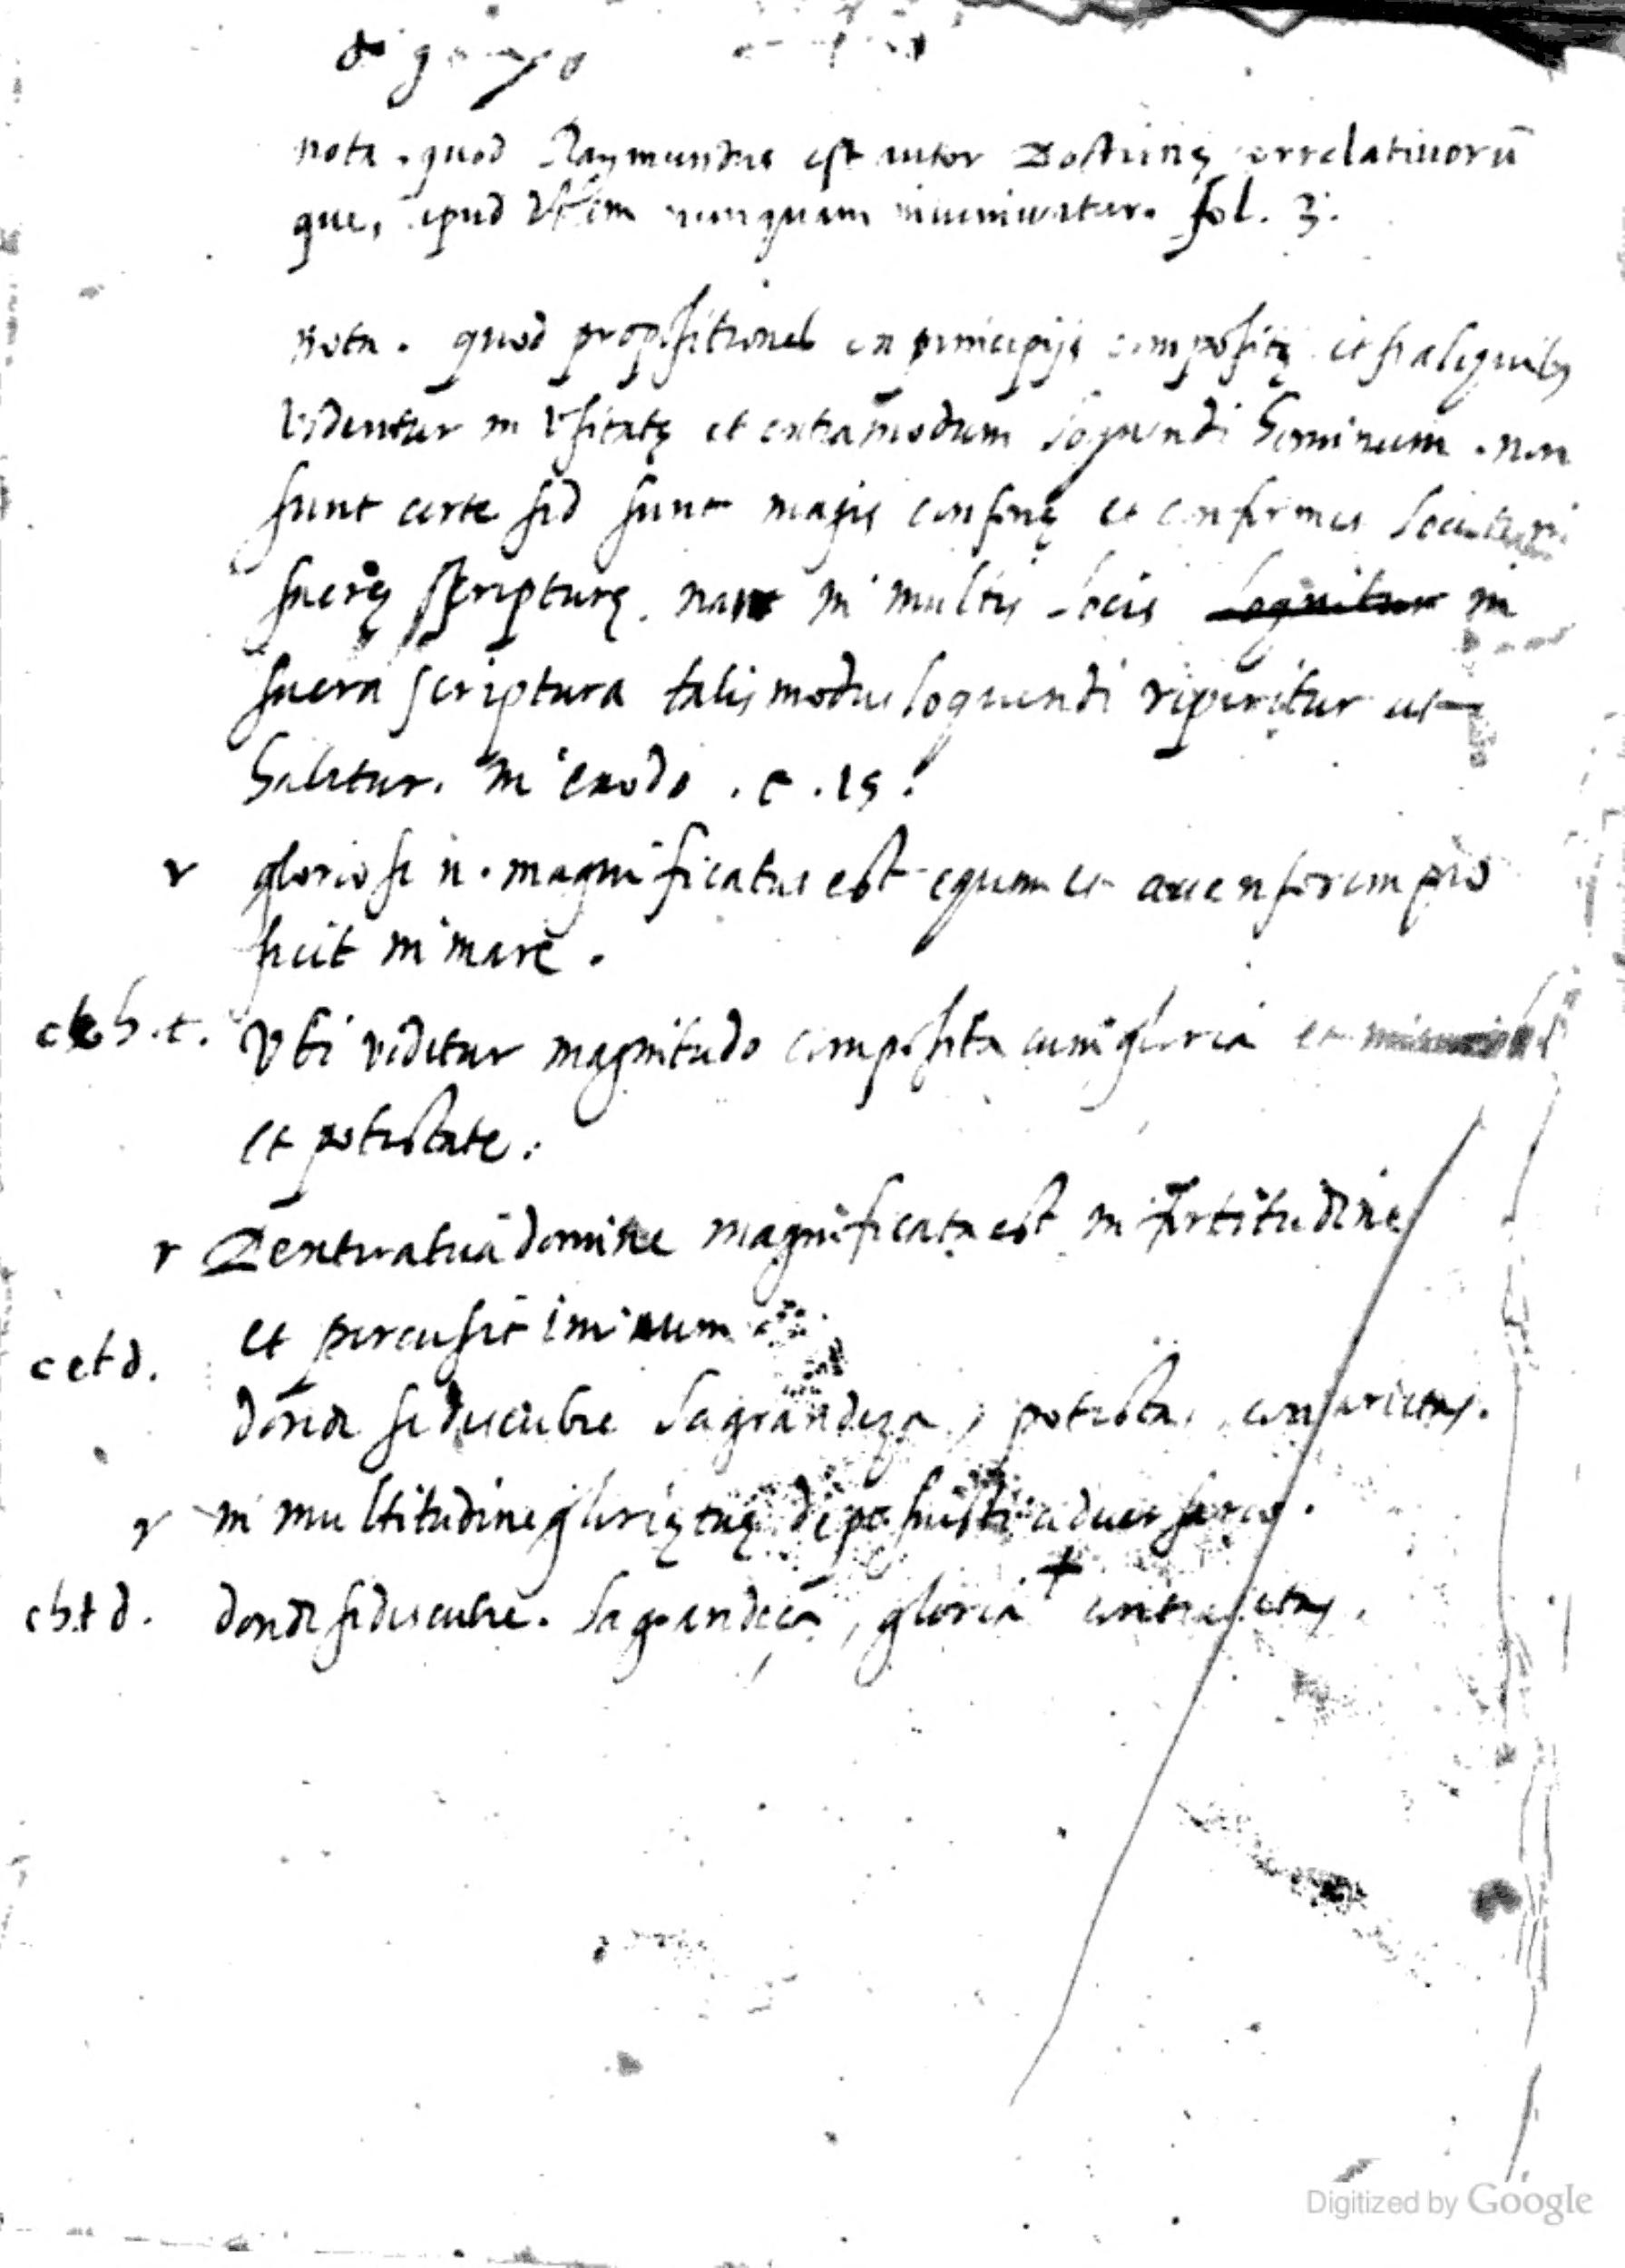 nota. quod Raymundus est autor doctrinę correlatiuorū
que, apud  nunquam inueniuntur. fol. 3.
nota. quod propositiones ex principijs compositę etsi aliquibus
videntur in vsitatę et extra modum loquendi hominum. non
sunt certe sed sunt magis consonę et conformes locutioni
sacrę scripturę. nam in multis locis loquitur in
sacra scriptura talis modus loquendi reperitur ut
habetur. in exodo. c. 15.
r gloriose n. magnificatus est equum et ascensorem pro
iecit in mare.
c b. t. Vbi videtur magnitudo composita cum gloria et
et potestate.
r Dextera tua domine magnificata est in fortitudine
et percusit inimicum
c et d. donde se descubre la grandeza, potestas, contrarietas.
r in multitudine glorię tuę deposuisti aduersarios.
c h t d. donde se descubre. la grandeca, gloria + contrarietas.
Digitized by Google